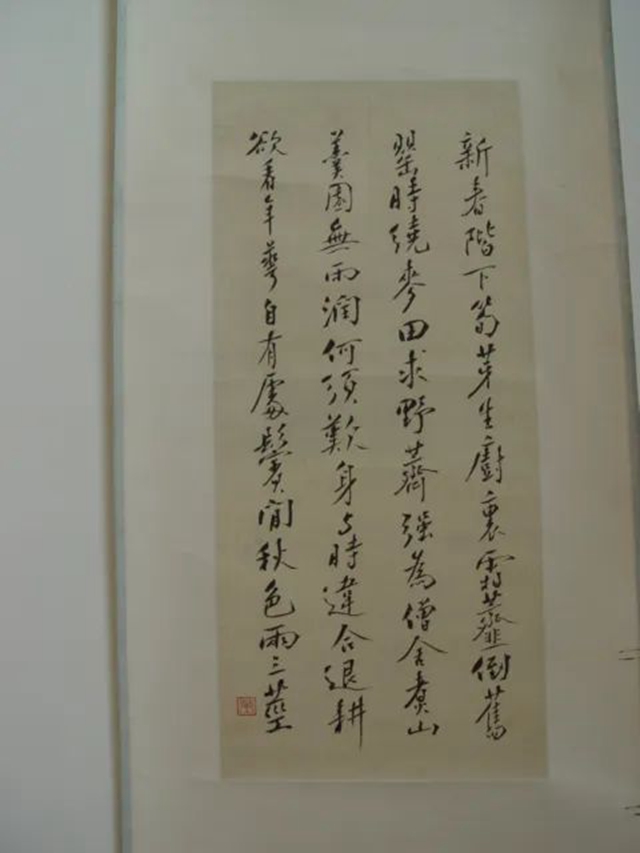 新春階下筍芽生廚裏霜虀倒舊
罌時繞麥田求野薺强為僧舍煑山
羹園無雨潤何須歎身与時違合退耕
欲看年華自有處鬢間秋色兩三莖